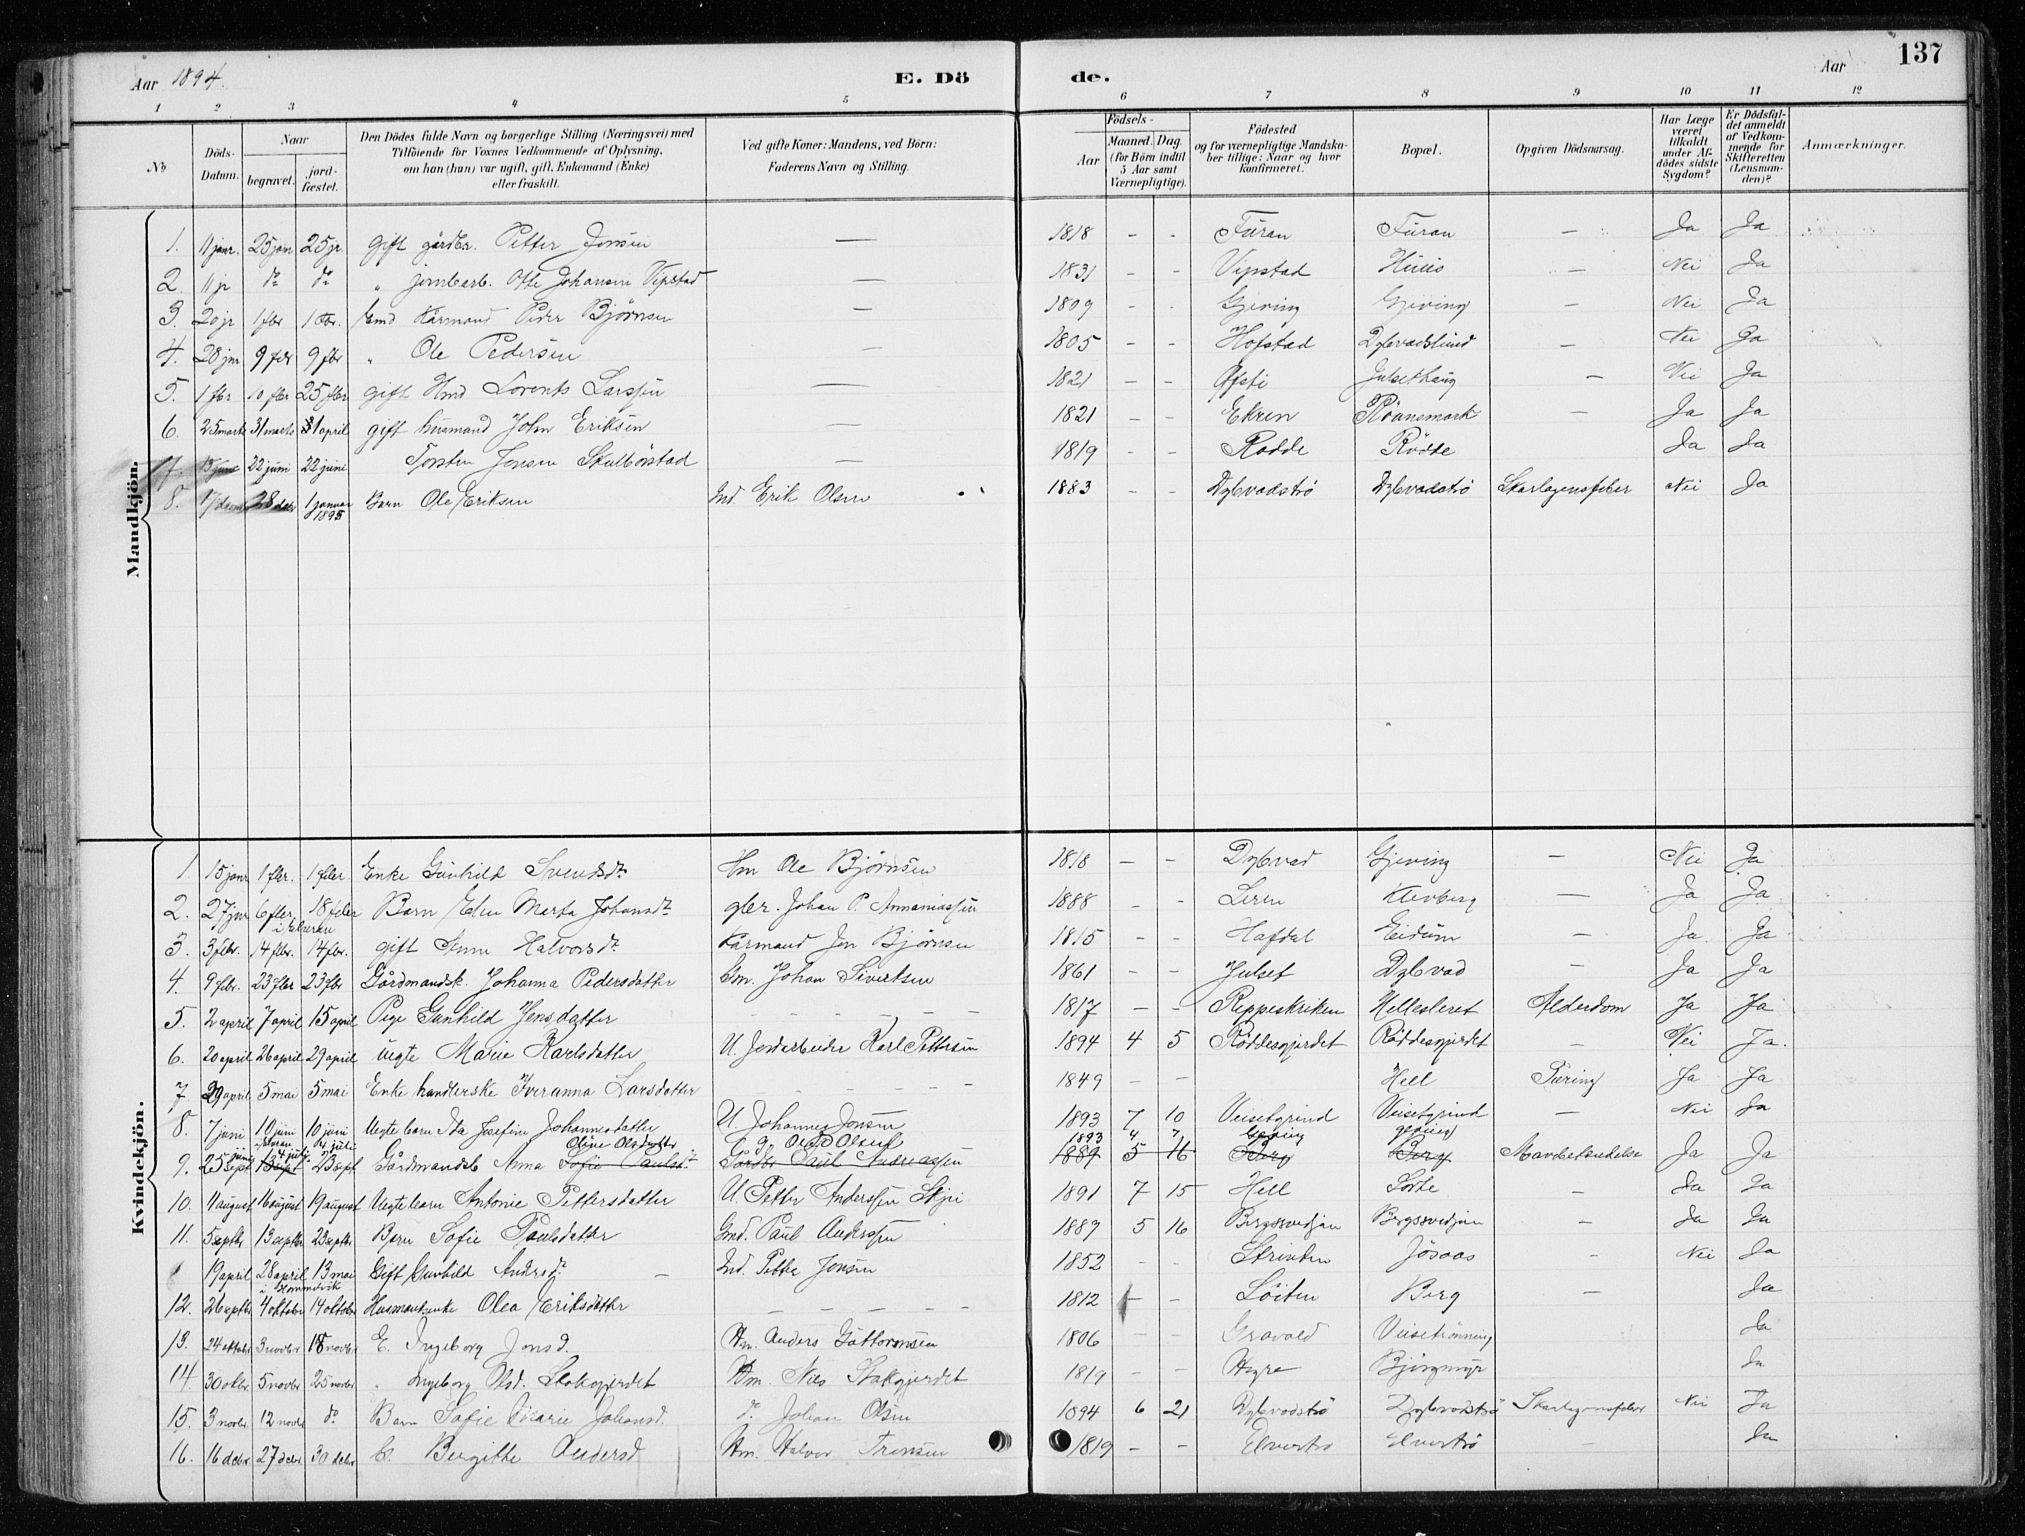 Aar 1894. E. Dö de. Aar 137
1 2 3 4 5 6 7 8 9 10 11 12
No Döds-Datum. Naar begravet. jordfæstet. Den Dödes fulde Navn og borgerlige Stilling (Næringsvei) med Tilföiende for Voxnes Vedkommende af Oplysning, om han (hun) var ugift, gift, Enkemand (Enke) eller fraskilt. Ved gifte Koner: Mandens, ved Börn: Faderens Navn og Stilling. Födsels- Aar Maaned. Dag. (for Börn indtil 5 Aar samt Værnepligtige). Födested og for værnepligtige Mandskaber tillige: Naar og hvor konfirmeret. Bopæl. Opgiven Dödsaarsag. Har Læge været tilkaldt under Afdödes sidste Sygdom? Er Dödsfaldet anmeldt af Vedkommende for Skifteretten (Lensmanden)? Anmærkninger.
Mandkjön.
1. 11 janr. 25 jan 25 jr gift gårdbr. Petter Jonsen — 1818 - - Furan Furan — Ja Ja
2. 11 jr do do " jernbarb. Ole Johansen Vipstad — 1831 - - Vipstad — Nei Ja
3. 20 jr 1 fbr 1 fbr. Emd Kårmand Peder Björnsen — 1809 - - Gjeving Gjeving — Nei Ja
4. 28 jnr 9 febr 9 fbr " Ole Pedersen — 1805 - - Hofstad Dybvadslund — Nei Ja
5. 1 fbr 10 fbr 25 fbr gift Hmd Lorents Larssen — 1821 - - Øfsti Julsethaug — Nei Ja
6. 25 marts 31 marts 1 april gift husmand John Eriksen — 1821 - - Ekren Röansmark — Ja Ja
7. 13 juni 22 juni 22 juni Torsten Jensen Skulbörstad — 1819 - - Rödde Rödde Ja Ja
8. 17 decm 28 decbr 1 januar 1895 Barn Ole Eriksen Ind. Erik Olsen 1883 - - Dybvadströ Dybvadströ Skarlagensfeber Nei Ja
Kvindekjön.
1. 15 janr 1 fbr. 1 febr. Enke Gunhild Svendsdr Hm Ole Björnsen 1818 - - Dybvad Gjeving — Nei Ja
2. 27 jnr 6 febr. 18 febr Barn Elen Marta Johansdr gbr. Johan P. Annaniassen 1888 - - Leren Klevberg — Ja Ja
3. 3 fbr. 14 fbr. 14 fbr. gift Anne Halvorsdr Kårmand Jon Björnsen 1815 - - Hafdal Eidum — Ja Ja
4. 9 fbr. 23 fbr 23 fbr Gårdmandsk. Johanna Pedersdatter Gm. Johan Sivertsen 1861 - - Julset Dybvad — Ja Ja
5. 2 april 7 april 15 april Pige Gunhild Jensdatter - - - 1817 - - Reppeskriken Hellesleret Alderdom Ja Ja
6. 20 april 26 april 29 april uegte Marie Karlsdatter U. Jordarbeider Karl Pettersen 1894 4 5 Röddesgjerdet Röddesgjerdet — Nei Ja.
7 29 april 5 mai 5 mai Enke handlerske Iveranna Larsdatter - - - 1849 - - Hell Tæring Ja Ja
8. 7 juni 10 juni 10 juni Uegte barn Ida Josefine Johannesdatter U. Johannes Jonsen 1893 7 10 Veisetgrind Veisetgrind — Nei Ja
juni 4 juli juli Oline Olsdatter 1893 4 7 gjeving gjeving
9. 25 sept 13 sept 23 sept Gårdmandsb Anna Sofie Paulsdr Gårdbr Paul Andreassen 1889 5 16 Berg Berg Mavebetendelse Ja Ja
10. 11 august 16 august 19 august Uegtebarn Antonie Pettersdatter U. Petter Anderssen Skjei 1891 7 15 Hell — Ja Ja
11. 5 septbr 13 septbr 23 septbr Barn Sofie Paulsdatter Gmd. Paul Anderssen 1889 5 16 Bergssvedjan Bergssvedjan — Ja Ja
19 april 28 april 13 mai Gift Gunhild Andersdr — Ind. Petter Jonsen 1852 - - Strinden Jösaas — Nei Ja
i Hommelvik
12. 26 septbr 4 oktober 14 oktbr Husmandsenke Olea Eriksdatter - - - 1812 - - Löiten Berg — Ja
13. 24 oktober 3 novbr 18 novbr E. Ingeborg Jonsd. Hm. Anders Guttormsen 1806 - - Gravald Veisetrönning Ja
14. 30 okbr. 5 novbr 25 novbr " Ingeborg Olsd. Stokgjerdet Hm. Nils Stokgjerdet 1819 - - Hegre Bjørgmyr Ja
15. 3 novbr. 12 novbr do Barn Sofie Marie Johansd. do Johan Olsen 1894 6 21 Dybvodströ Dybvodströ Skarlagensfeber Nei Ja
16. 16 decbr 27 decbr 30 decbr E. Birgitte Andersd Hm. Halvor 1819 - - Elvertrö Elvertrö — Ja